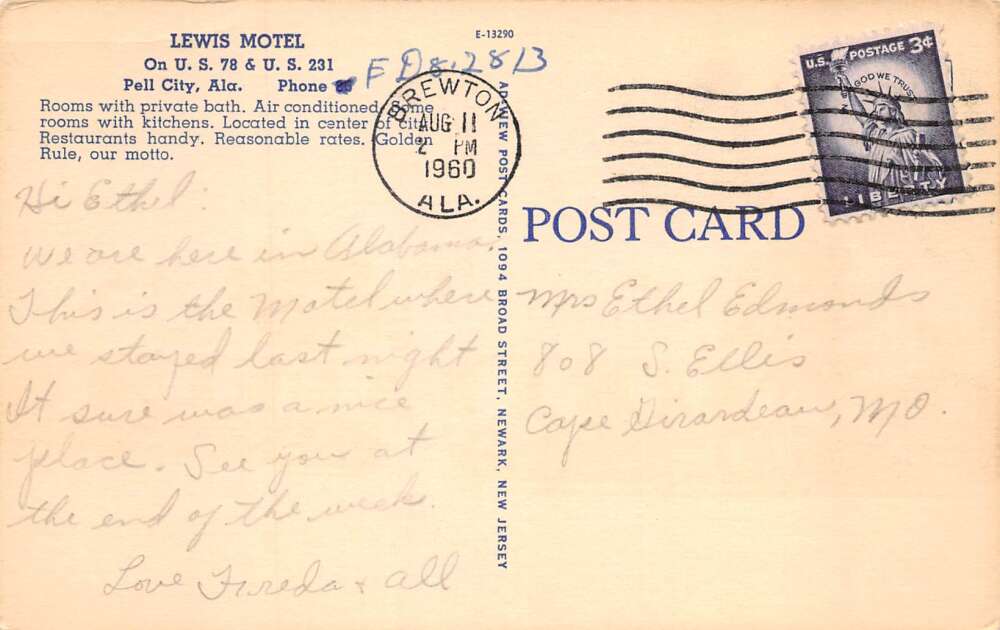 LEWIS MOTEL
On U. S. 78 & U. S. 231
Pell City, Ala. Phone
FD8-2813
Rooms with private bath. Air conditioned, some
rooms with kitchens. Located in center of city.
Restaurants handy. Reasonable rates. Golden
Rule, our motto.
E-13290
BREWTON
AUG 11
2 PM
1960
ALA.
U.S. POSTAGE 3¢
IN GOD WE TRUST
LIBERTY
POST CARD
ART VIEW POST CARDS, 1094 BROAD STREET, NEWARK, NEW JERSEY
Hi Ethel:
We are here in Alabama.
This is the Motel where
we stayed last night
It sure was a nice
place. See you at
the end of the week.
Love Freda & all
Mrs Ethel Edmonds
808 S. Ellis
Cape Girardeau, MO.